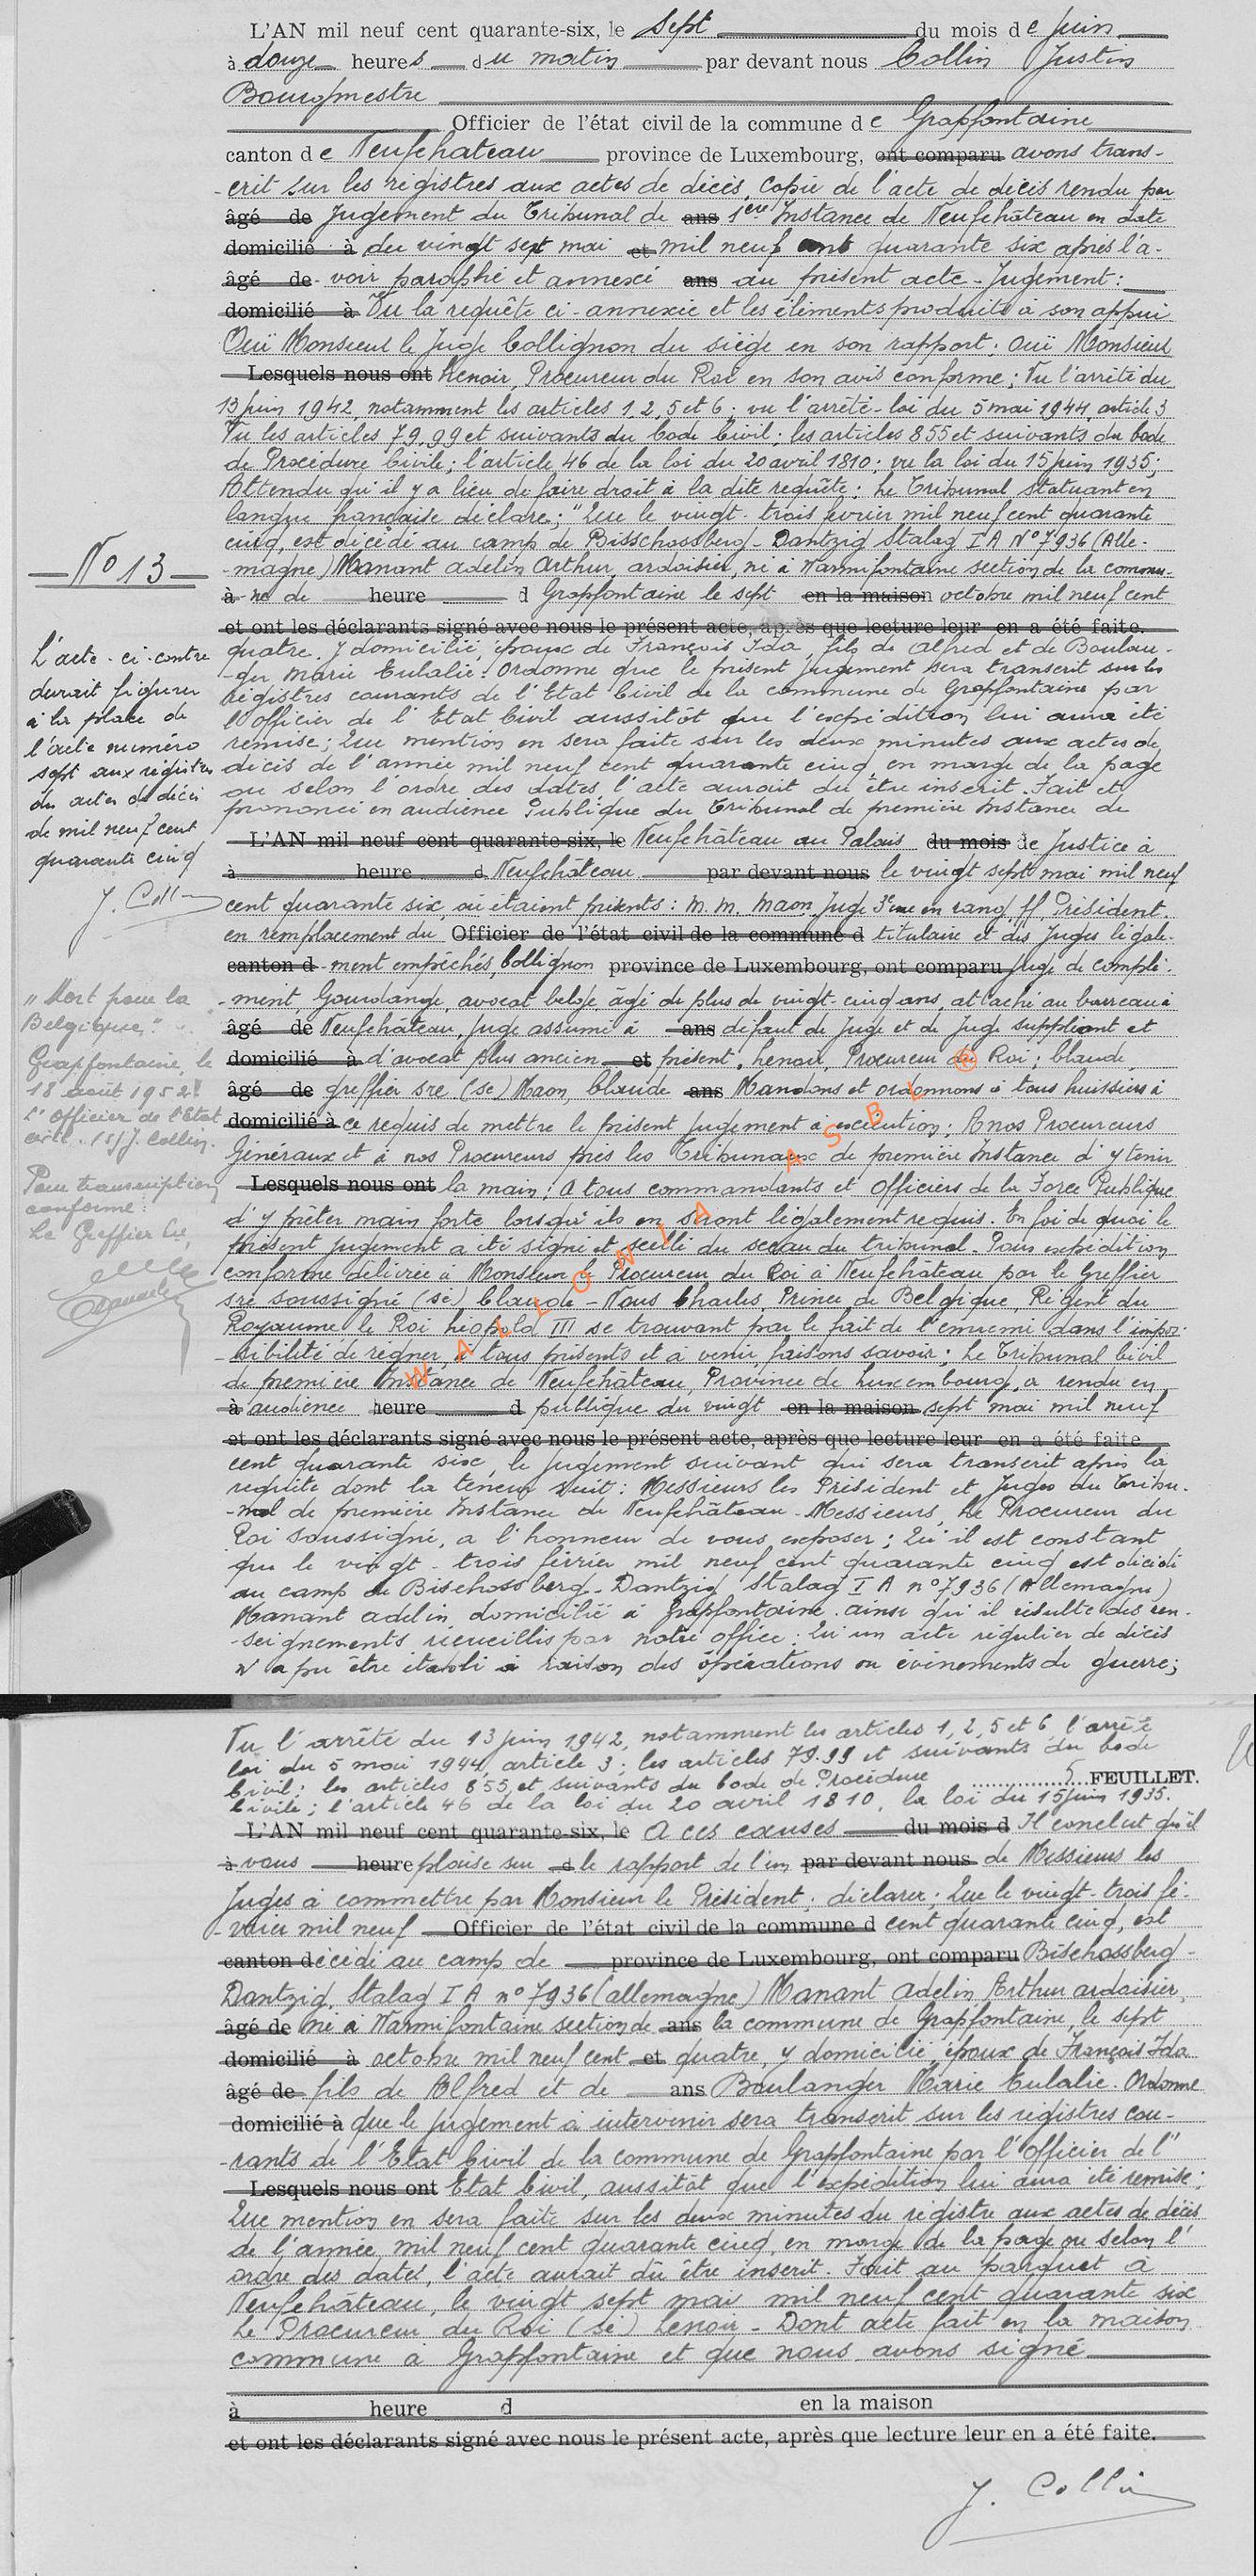 L'AN mil neuf cent quarante-six, le sept du mois de juin
à douze heures du matin par devant nous Collin Justin
Bourgmestre
Officier de l'état civil de la commune de Grapfontaine
canton de Neufchateau province de Luxembourg, ont comparu avons trans-
-crit sur les régistres aux actes de décès, copie de l'acte de décès rendu par
âgé de Jugement du Tribunal de ans 1ère Instance de Neufchâteau en date
domicilié à du vingt sept mai et mil neuf cent quarante six après l'a-
âgé de - voir paraphé et annexé ans au présent acte - Jugement :
domicilié à Vu la requête ci-annexée et les éléments produits à son appui
Ouï Monsieur le Juge Collignon du siège en son rapport ; Ouï Monsieur
Lesquels nous ont Lenoir, Procureur du Roi en son avis conforme ; Vu l'arrêté du
13 juin 1942, notamment les articles 1, 2, 5 et 6 ; vu l'arrêté-loi du 5 mai 1944, article 3
Vu les articles 79.99 et suivants du Code Civil ; les articles 855 et suivants du Code
de Procédure Civile ; l'article 46 de la loi du 20 avril 1810 ; vu la loi du 15 juin 1935 ;
Attendu qu'il y a lieu de faire droit à la dite requête : Le Tribunal statuant en
langue française déclare ; "Que le vingt-trois février mil neuf cent quarante
cinq, est décédé au camp de Bisschossberg - Dantzig Stalag I A N° 7936 (Alle-
-magne) Manant Adelin Arthur, ardoisier, né à Warmifontaine section de la commu-
à - ne de heure d Grapfontaine le sept en la maison octobre mil neuf cent
et ont les déclarants signé avec nous le présent acte, après que lecture leur en a été faite.
quatre, y domicilié, époux de François Ida, fils de Alfred et de Boulan-
-ger Marie Eulalie. Ordonne que le présent jugement sera transcrit sur les
régistres courants de l'Etat Civil de la commune de Grapfontaine par
l'officier de l'Etat Civil aussitôt que l'expédition lui aura été
remise ; Que mention en sera faite sur les deux minutes aux actes de
décès de l'année mil neuf cent quarante cinq, en marge de la page
ou selon l'ordre des dates, l'acte aurait dû être inscrit. Fait et
prononcé en audience Publique du Tribunal de première Instance de
L'AN mil neuf cent quarante-six, le Neufchâteau au Palais du mois de Justice à
à heure d Neufchâteau par devant nous le vingt sept mai mil neuf
cent quarante six, où étaient présents : M.M. Maon, Juge 3ème en rang ff Président
en remplacement du Officier de l'état civil de la commune d titulaire et des Juges légale-
canton d -ment empêchés, Collignon province de Luxembourg, ont comparu Juge de complé-
-ment, Gourdange, avocat belge, âgé de plus de vingt-cinq ans, attaché au barreau à
âgé de Neufchâteau, Juge assumé à ans défaut de Juge et de Juge suppléant et
domicilié à d'avocat plus ancien et présent, Lenoir, Procureur du Roi ; Claude
âgé de greffier sre (sé) Maon, Claude ans Mandons et ordonnons à tous huissiers à
domicilié à ce requis de mettre le présent jugement à exécution ; A nos Procureurs
Généraux et à nos Procureurs près les Tribunaux de première Instance d'y tenir
Lesquels nous ont la main ; A tous commandants et Officiers de la Force Publique
d'y prêter main forte lorsqu'ils en seront légalement requis. En foi de quoi le
présent jugement a été signé et scellé du sceau du tribunal. Pour expédition
conforme délivrée à Monsieur le Procureur du Roi à Neufchâteau par le Greffier
sre soussigné (sé) Claude - Nous Charles, Prince de Belgique, Régent du
Royaume le Roi Léopold III se trouvant par le fait de l'ennemi dans l'impos-
-sibilité de régner, à tous présents et à venir faisons savoir ; Le Tribunal Civil
de première Instance de Neufchâteau, Province de Luxembourg, a rendu en
à audience heure d publique du vingt en la maison sept mai mil neuf
et ont les déclarants signé avec nous le présent acte, après que lecture leur en a été faite
cent quarante six, le Jugement suivant qui sera transcrit après la
requête dont la teneur suit : Messieurs les Président et Juges du Tribu-
-nal de première Instance de Neufchâteau - Messieurs, Le Procureur du
Roi soussigné, a l'honneur de vous exposer ; Qu'il est constant
que le vingt-trois février mil neuf cent quarante cinq est décédé
au camp de Bischossberg - Dantzig Stalag I A n° 7936 (Allemagne)
Manant Adelin domicilié à Grapfontaine, ainsi qu'il résulte des ren-
-seignements recueillis par notre office ; Qu'un acte régulier de décès
n'a pu être établi à raison des opérations ou événements de guerre ;
N° 13
L'acte-ci-contre
devrait figurer
à la place de
l'acte numéro
sept aux régistres
des actes de décès
de mil neuf cent
quarante cinq
J. Collin
"Mort pour la
Belgique".
Grapfontaine, le
18 août 1952.
L'Officier de l'Etat
civil. (s) J. Collin.
Pour transcription
conforme :
Le Greffier
WALLONIA ASBL ®
Vu l'arrêté du 13 juin 1942, notamment les articles 1, 2, 5 et 6, l'arrêté
loi du 5 mai 1944, article 3 ; les articles 79.99 et suivants du Code
Civil ; les articles 855 et suivants du Code de Procédure 5 FEUILLET.
Civile ; l'article 46 de la loi du 20 avril 1810, la loi du 15 juin 1935.
L'AN mil neuf cent quarante-six, le A ces causes du mois d Il conclut qu'il
à vous heure plaise sur d le rapport de l'un par devant nous de Messieurs les
Juges à commettre par Monsieur le Président ; déclarer ; Que le vingt-trois fé-
-vrier mil neuf Officier de l'état civil de la commune d cent quarante cinq, est
canton décédé au camp de province de Luxembourg, ont comparu Bischossberg -
Dantzig, Stalag I A n° 7936 (allemagne) Manant Adelin Arthur ardoisier,
âgé de né à Warmifontaine section de ans la commune de Grapfontaine, le sept
domicilié à octobre mil neuf cent et quatre, y domicilié, époux de François Ida
âgé de fils de Alfred et de ans Boulanger Marie Eulalie. Ordonne
domicilié à que le jugement à intervenir sera transcrit sur les régistres cou-
-rants de l'Etat Civil de la commune de Grapfontaine par l'Officier de l'
Lesquels nous ont Etat Civil, aussitôt que l'expédition lui aura été remise ;
Que mention en sera faite sur les deux minutes du régistre aux actes de décès
de l'année mil neuf cent quarante cinq, en marge de la page ou selon l'
ordre des dates, l'acte aurait dû être inscrit. Fait au parquet à
Neufchâteau, le vingt sept mai mil neuf cent quarante six
Le Procureur du Roi (sé) Lenoir - Dont acte fait en la maison
commune à Grapfontaine et que nous avons signé
à heure d en la maison
et ont les déclarants signé avec nous le présent acte, après que lecture leur en a été faite.
J. Collin